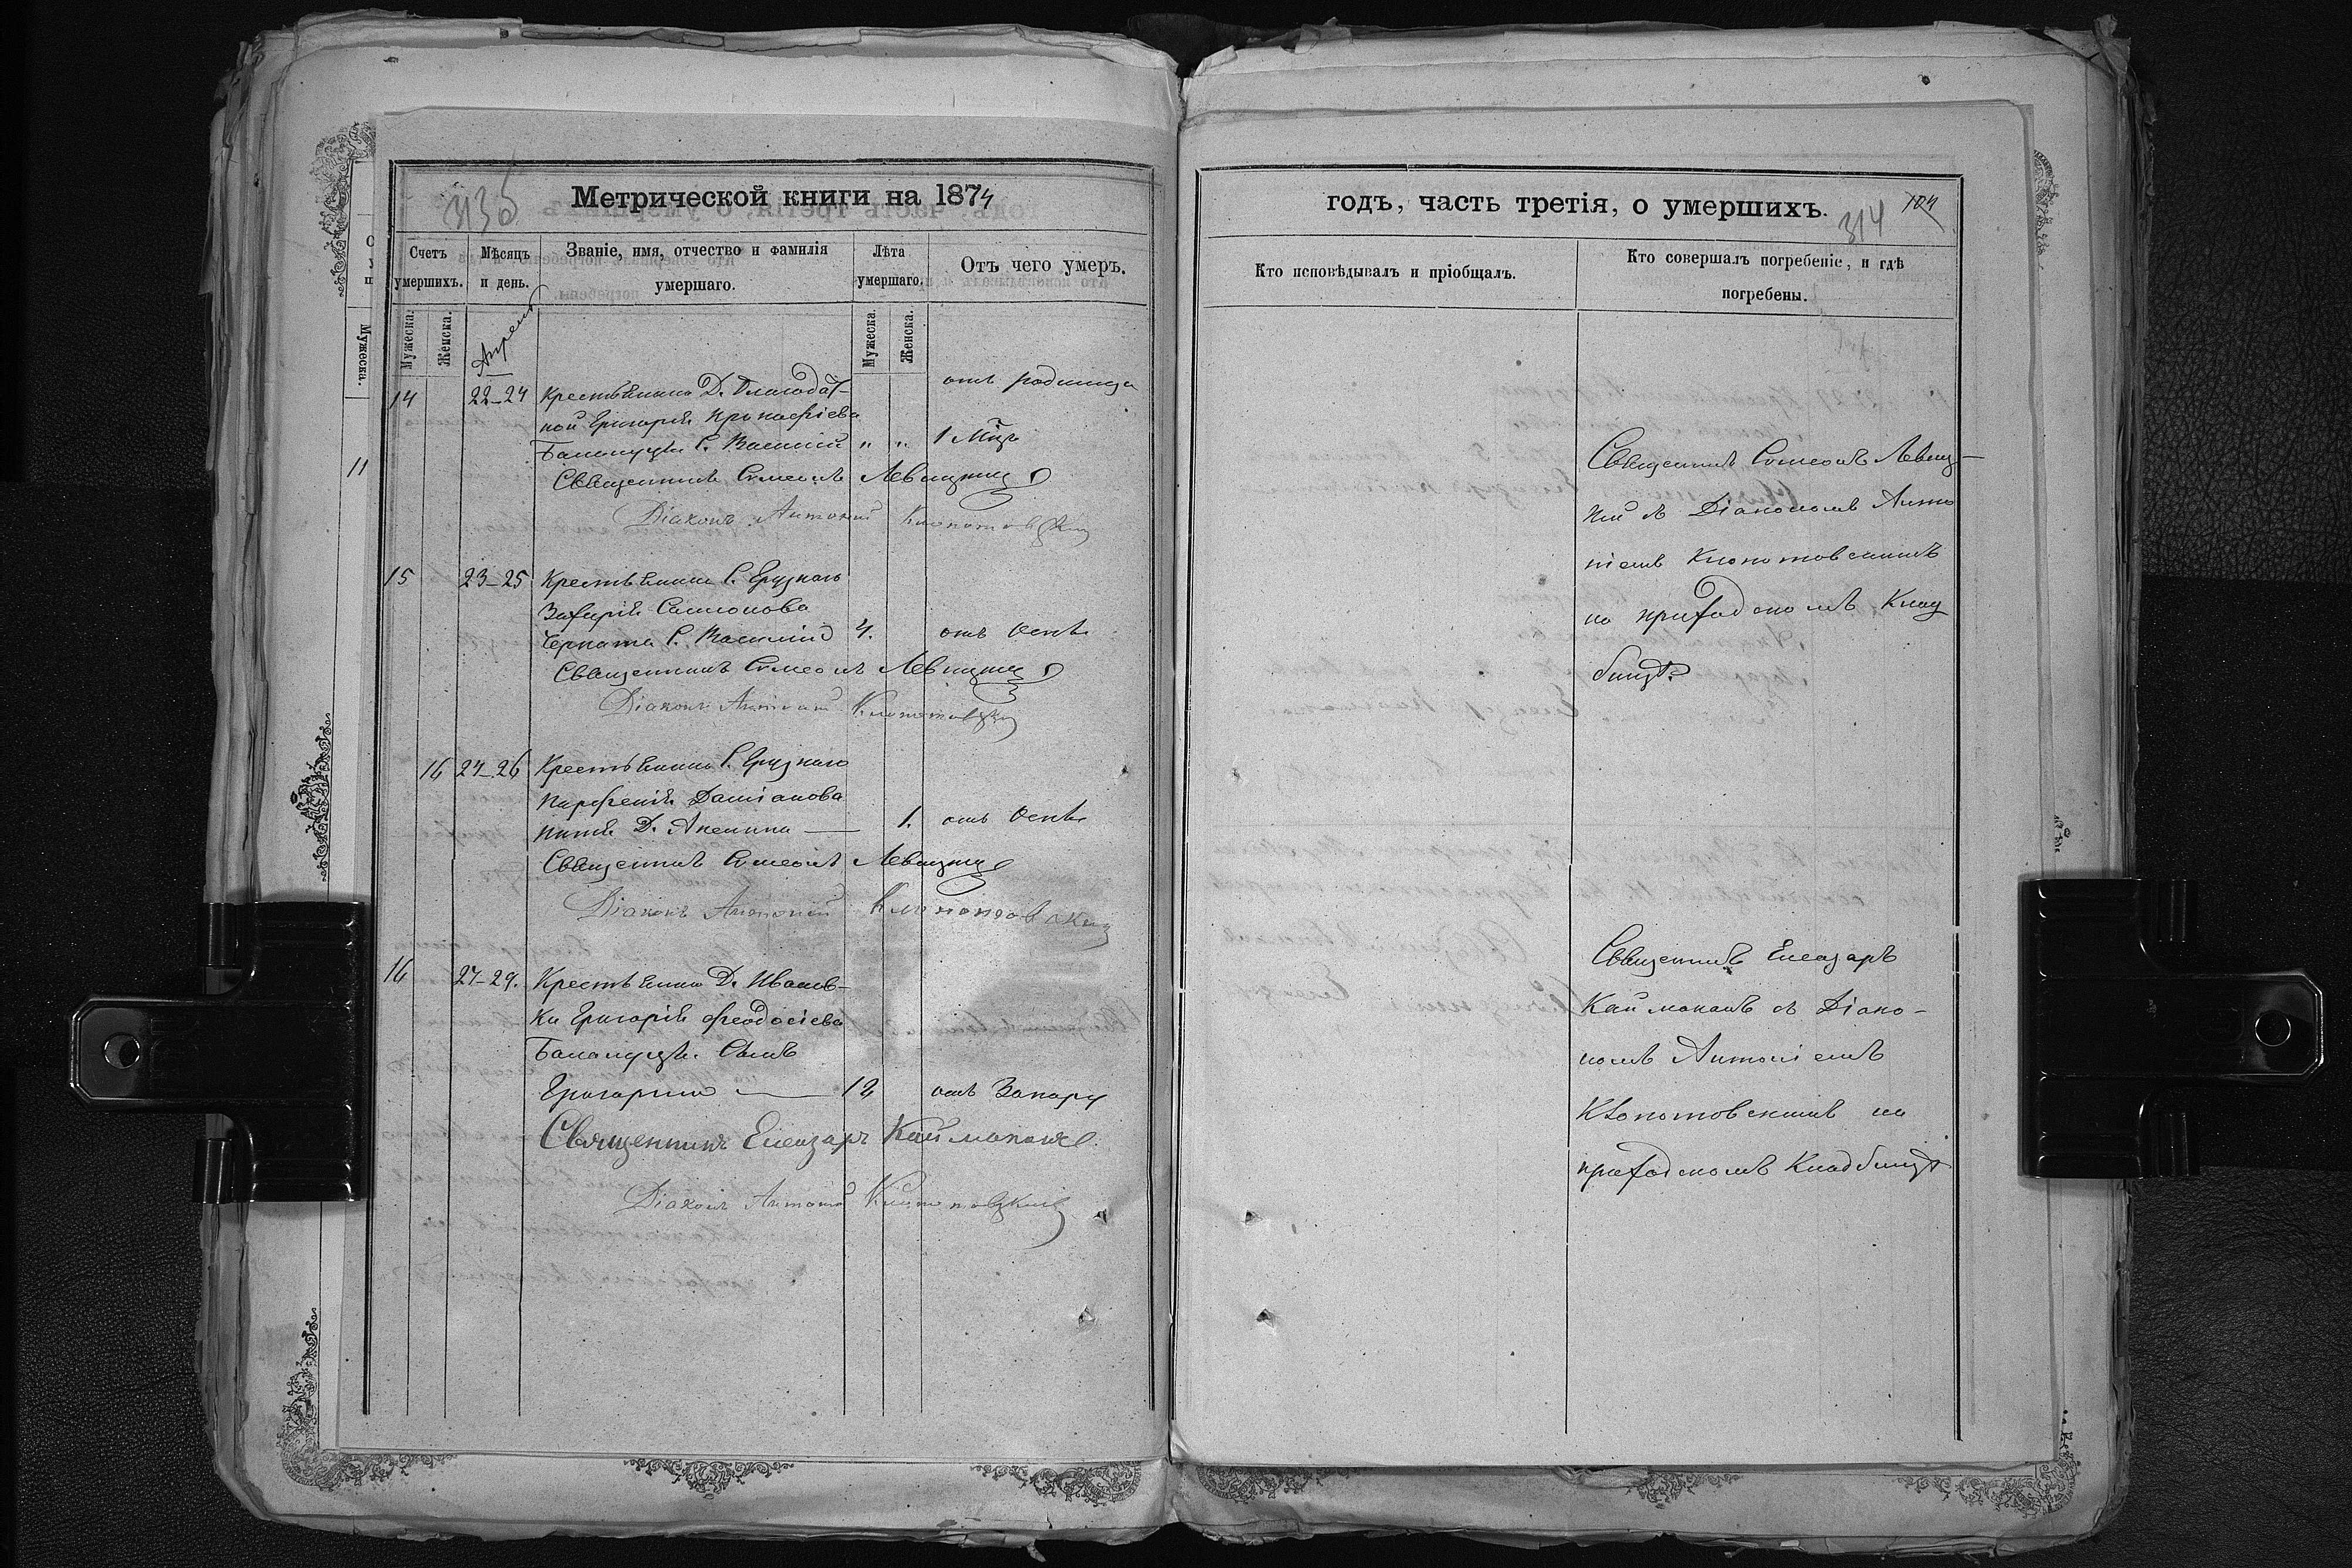 Метрической книги на 1874
Счетъ умершихъ.
Мѣсяцъ и день.
Званіе, имя, отчество и фамилія умершаго.
Лѣта умершаго.
Отъ чего умеръ.
Мужеска.
Женска.
Мужеска.
Женска.
Апрель
14 22–24 Крестьянина Д. Благодат-
ной Григорія Прокофіева
Балануцы С. Василій " " 1 Мцъ
отъ родимца
Священникъ Симеонъ Левицкій
Діаконъ Антоній Клопотовскій
15 23–25 Крестьянина С. Грузкаго
Захарія Самсонова
С. Василій 4. отъ Оспы
Священникъ Симеонъ Левицкій
Діаконъ Антоній Клопотовскій
16 24–26 Крестьянина С. Грузкаго
Парфенія Даміанова
Д. Акелина — 1. отъ Оспы
Священникъ Симеонъ Левицкій
Діаконъ Антоній Клопотовскій
16 27–29. Крестьянина Д. Иванов-
ки Григорія Феодосіева
Балануцы Сынъ
Григорій — 12 отъ Запору
Священникъ Елеазаръ Каймаканъ
Діаконъ Антоній Клопотовскій
11
Мужеска.
годъ, часть третія, о умершихъ.
314
104
Кто исповѣдывалъ и пріобщалъ.
Кто совершалъ погребеніе, и гдѣ погребены.
Священникъ Симеонъ Левиц-
кій съ Діакономъ Анто
ніемъ Клопотовскимъ
на приходскомъ Клад
бищѣ.
Священникъ Елеазаръ
Каймаканъ съ Діако-
номъ Антоніемъ
Клопотовскимъ на
приходскомъ Кладбищѣ